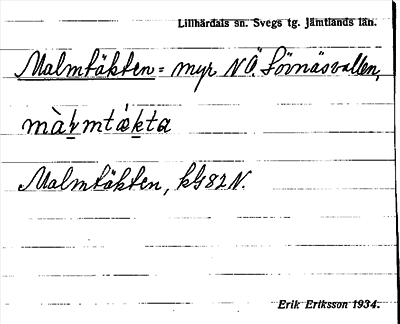 Lillhärdals sn. Svegs tg. jämtlands län.
Malmtäkten = myr NÖ. Lövnäsvallen,
Malmtäkten, kG82N.
Erik Eriksson 1934.